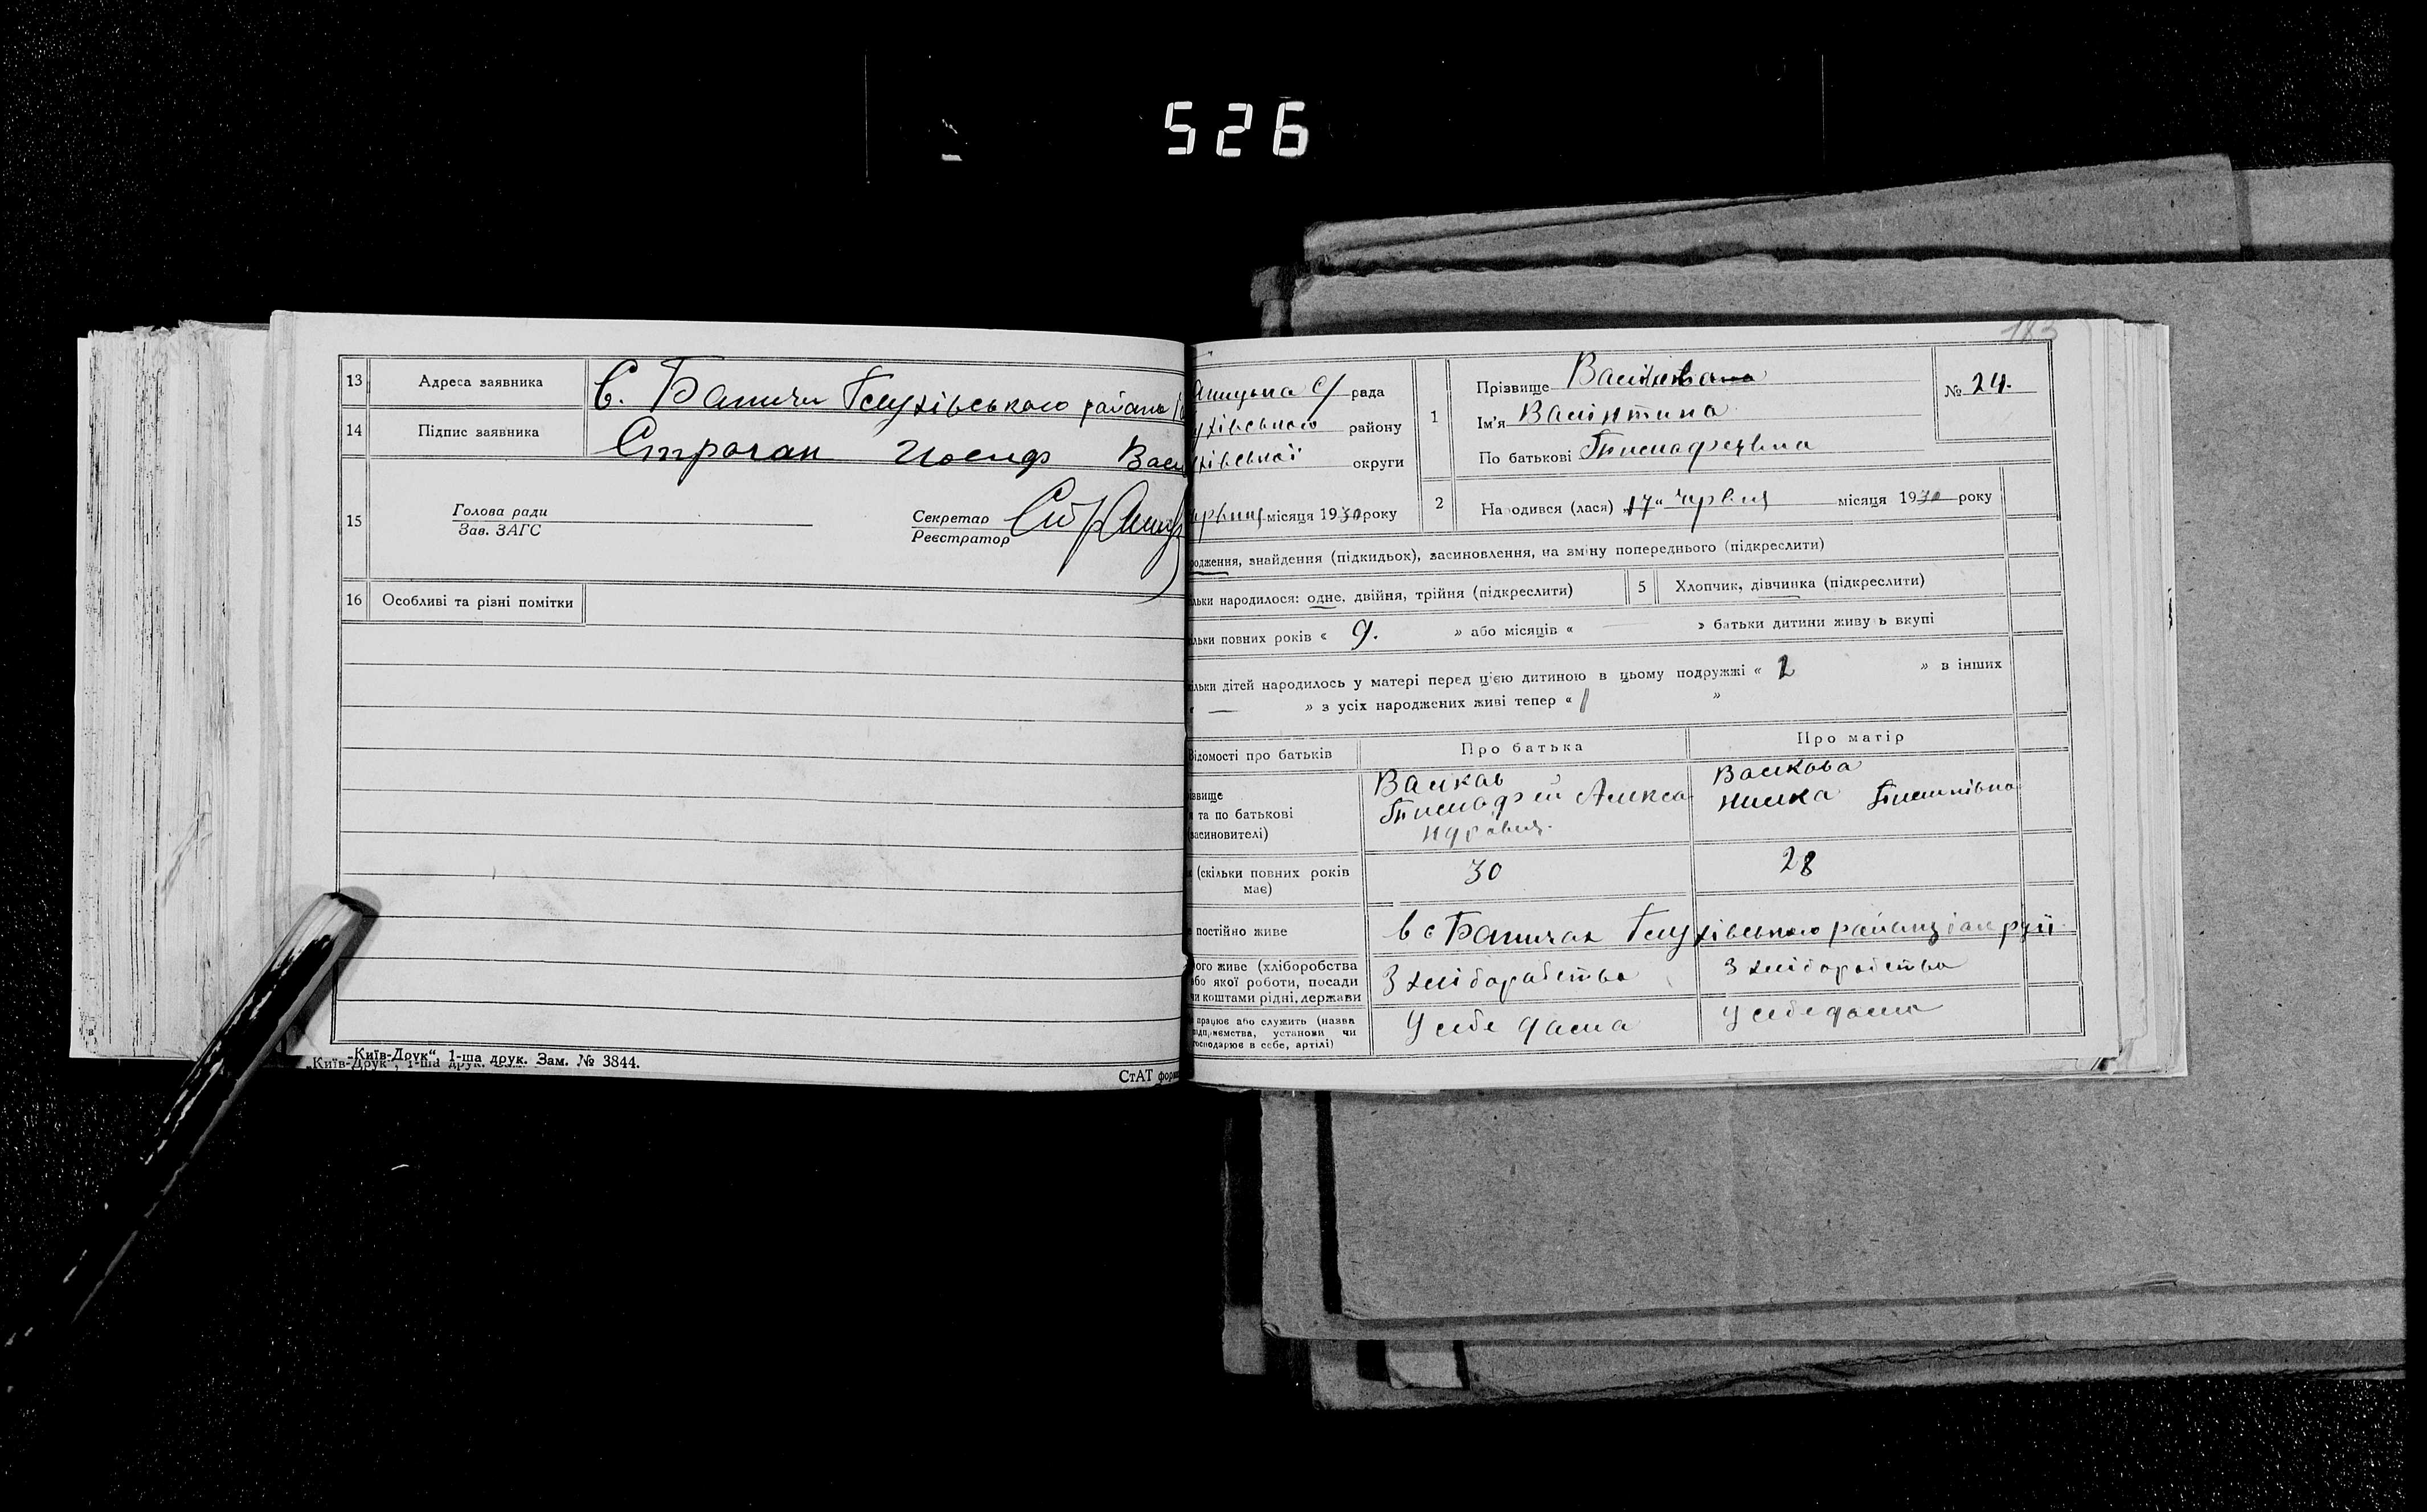 526
13 Адреса заявника С. Баничи Глухівського району
14 Підпис заявника Строган Иосиф Васи
15 Голова ради
Зав. ЗАГС
Секретар
Реєстратор
16 Особливі та різні помітки
„Київ-Друк“, 1-ша друк. Зам. № 3844.
„Київ-Друк“, 1-ша друк.
СтАТ форм
183
аницька с/ рада
ухівського району
хівської округи
ервня місяця 1930 року
1 Прізвище
Ім'я Валінтина
По батькові Тимофеевна
№ 24.
2 На одився (лася) „17“ червня місяця 1930 року
одження, знайдення (підкидьок), засиновлення, на зміну попереднього (підкреслити)
льки народилося: одне, двійня, трійня (підкреслити)
5 Хлопчик, дівчинка (підкреслити)
ільки повних років « 9. » або місяців « — » батьки дитини живу ь вкупі
ільки дітей народилось у матері перед ц'єю дитиною в цьому подружжі « 2 » в інших
« — » з усіх народжених живі тепер « »
Відомості про батьків Про батька Про матір
звище
и та по батькові
(засиновителі)
Валков
Тимофей Алекса
ндрович
Валкова
(скільки повних років
має)
30
28
постійно живе в с Баничах Глухівського району
ого живе (хліборобства
або якої роботи, посади
чи коштами рідні, держави
З хліборобства
З хліборобства
працює або служить (назва
підприємства, установи чи
господарює в себе, артілі)
У себе дома
У себе дома